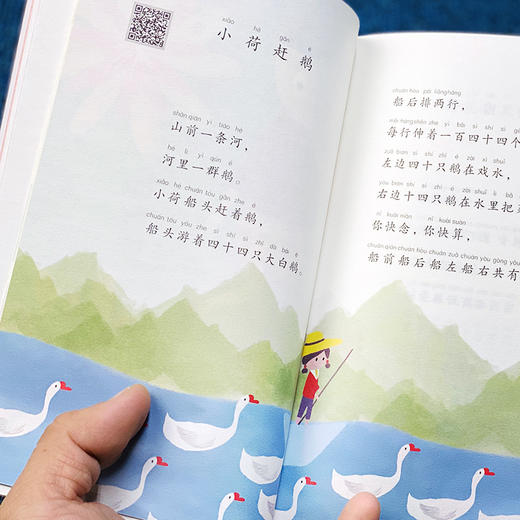 xiǎo hé gǎn é
小荷赶鹅
shān qián yì tiáo hé
山前一条河，
hé lǐ yì qún é
河里一群鹅。
xiǎo hé chuán tóu gǎn zhe é
小荷船头赶着鹅，
chuán tóu yóu zhe sì shí sì zhī dà bái é
船头游着四十四只大白鹅。
chuán hòu pái liǎng háng
船后排两行，
每行伸着一百四十四个
zuǒ biān sì shí zhī é zài xì shuǐ
左边四十只鹅在戏水，
右边十四只鹅在水里把
nǐ kuài niàn nǐ kuài suàn
你快念，你快算，
船前船后船左船右共有